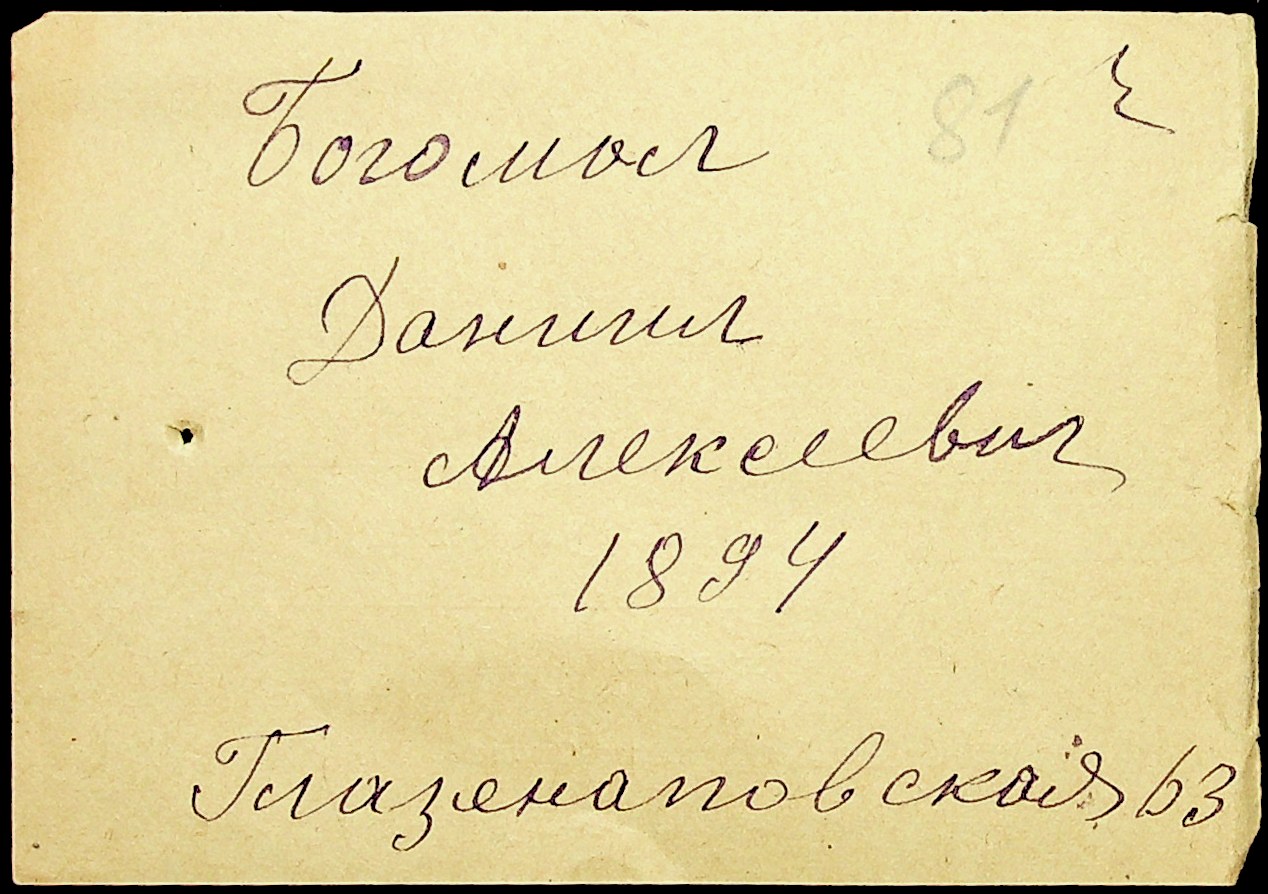 Богомол 81
Даниил
Алексеевич
1894
Глазенаповская 63